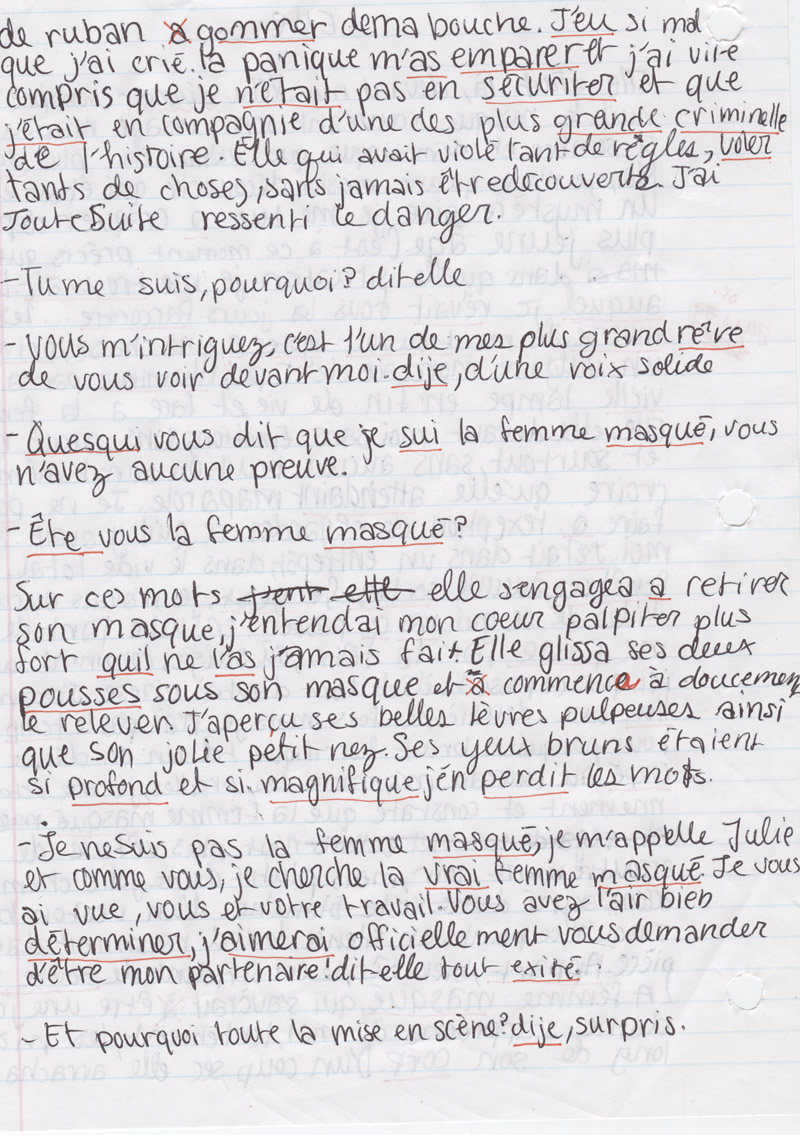 de ruban à gommer de ma bouche. J'eu si mal
que j'ai crié. la panique m'as emparer et j'ai vite
compris que je n'était pas en sécuriter et que
j'était en compagnie d'une des plus grande criminelle
de l'histoire. Elle qui avait violé tant de règles, voler
tants de choses, sans jamais être découverte. J'ai
toute suite ressenti le danger.
- Tu me suis, pourquoi? dit elle
- Vous m'intriguez, c'est l'un de mes plus grand rêve
de vous voir devant moi. dije, d'une voix solide
- Quesqui vous dit que je sui la femme masqué, vous
n'avez aucune preuve.
- Être vous la femme masqué?
Sur ces mots elle s'engagea a retirer
son masque, j'entendai mon coeur palpiter plus
fort quil ne l'as jamais fait. Elle glissa ses deux
pousses sous son masque et à commence à doucemen
le relever. J'aperçu ses belles lèvres pulpeuses ainsi
que son jolie petit nez. Ses yeux bruns étaient
si profond et si magnifique j'en perdit les mots.
- Je ne suis pas la femme masqué, je m'appelle Julie
et comme vous, je cherche la vrai femme masqué. Je vous
ai vue, vous et votre travail. Vous avez l'air bien
déterminer, j'aimerai officiellement vous demander
d'être mon partenaire! dit elle tout exité.
- Et pourquoi toute la mise en scène? dije, surpris.